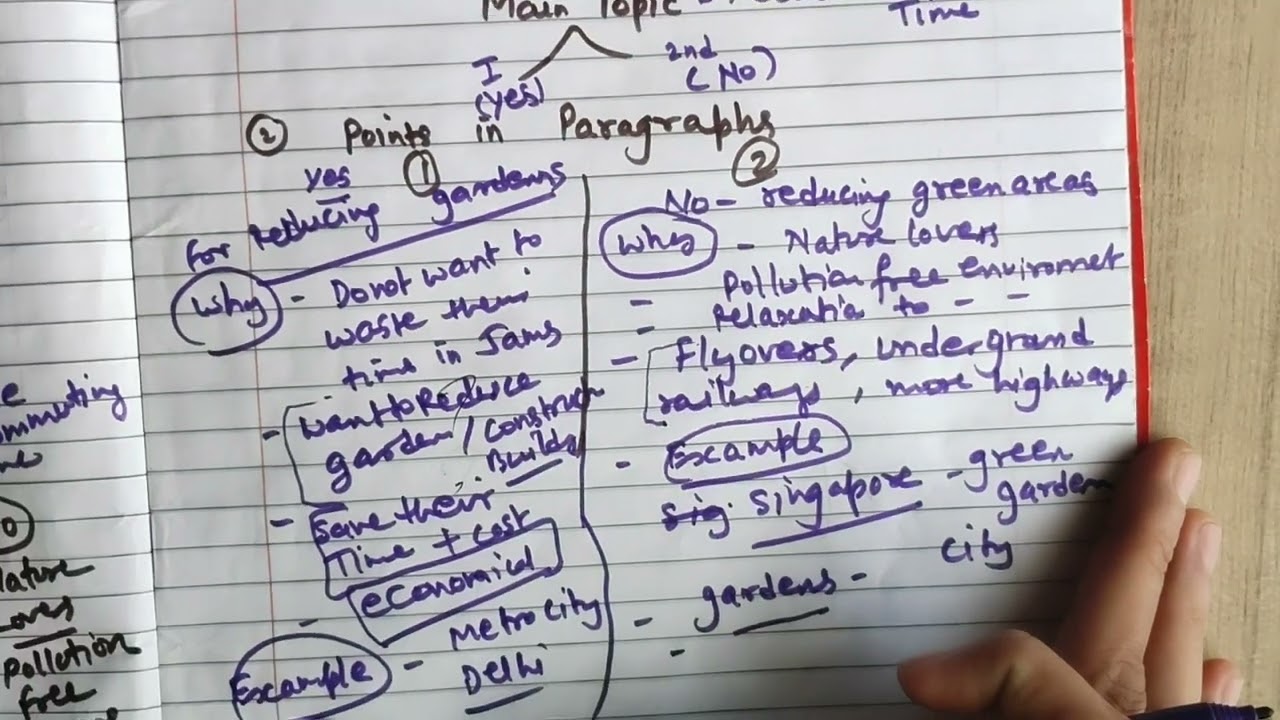 Main Topic -
Time
I
(yes)
2nd
(No)
② Points in Paragraphs
yes ①
for reducing gardens
Why - Donot want to
waste their
time in Jams
- want to Reduce
garden / construct
Build
- Save their
Time + cost
- economical
Example - Metrocity
Delhi
②
No - reducing green areas
Why - Nature lovers
- Pollution free enviromet
- Relaxatio to - -
- Flyovers, underground
railways, more highways
- Example
sig. Singapore - green
garden
city
- gardens -
-
ommuting
Pollution
free